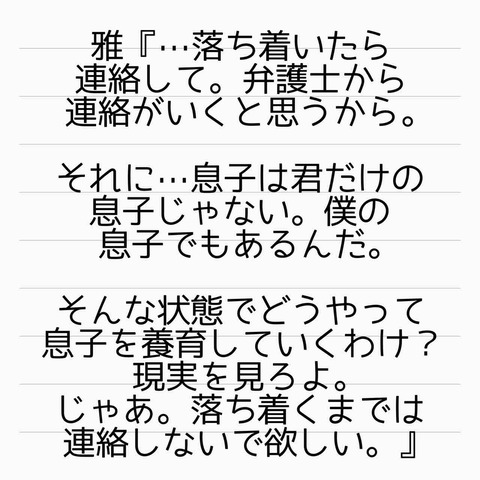 雅『…落ち着いたら
連絡して。弁護士から
連絡がいくと思うから。
それに…息子は君だけの
息子じゃない。僕の
息子でもあるんだ。
そんな状態でどうやって
息子を養育していくわけ？
現実を見ろよ。
じゃあ。落ち着くまでは
連絡しないで欲しい。』